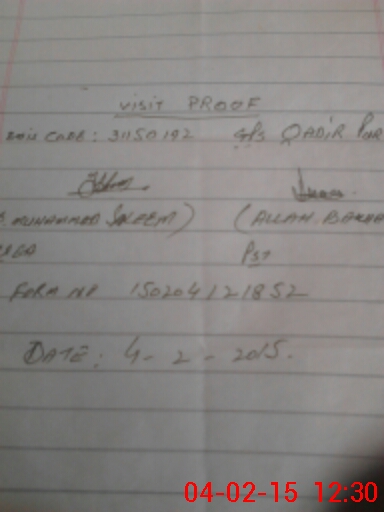 VISIT PROOF
CODE: 31150192 GPS QADIR POUR
MUHAMMED SALEEM) (ALLAH. BAKHSH
PST
FORM NO 150204121852
DATE: 4 - 2 - 2015.
04-02-15 12:30